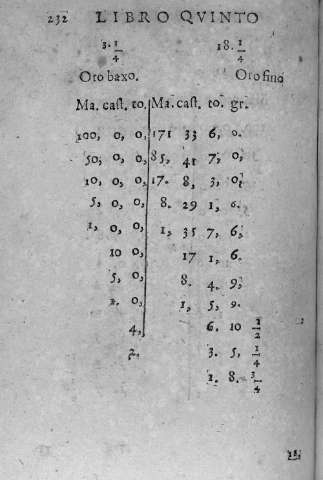 232 LIBRO QVINTO
3. 1/4 18. 1/4
Oro baxo. Oro fino
Ma. cast. to. Ma. cast. to. gr.
100, 0, 0, 171 33 6, 0.
50, 0, 0, 85, 41 7, 0,
10, 0, 0, 17. 8, 3, 0,
5, 0, 0, 8. 29 1, 6.
1, 0, 0, 1, 35 7, 6,
10 0, 17 1, 6.
5, 0, 8. 4. 9,
1, 0, 1, 5, 9.
4, 6. 10 1/2
2, 3. 5, 1/4
1. 8. 3/4